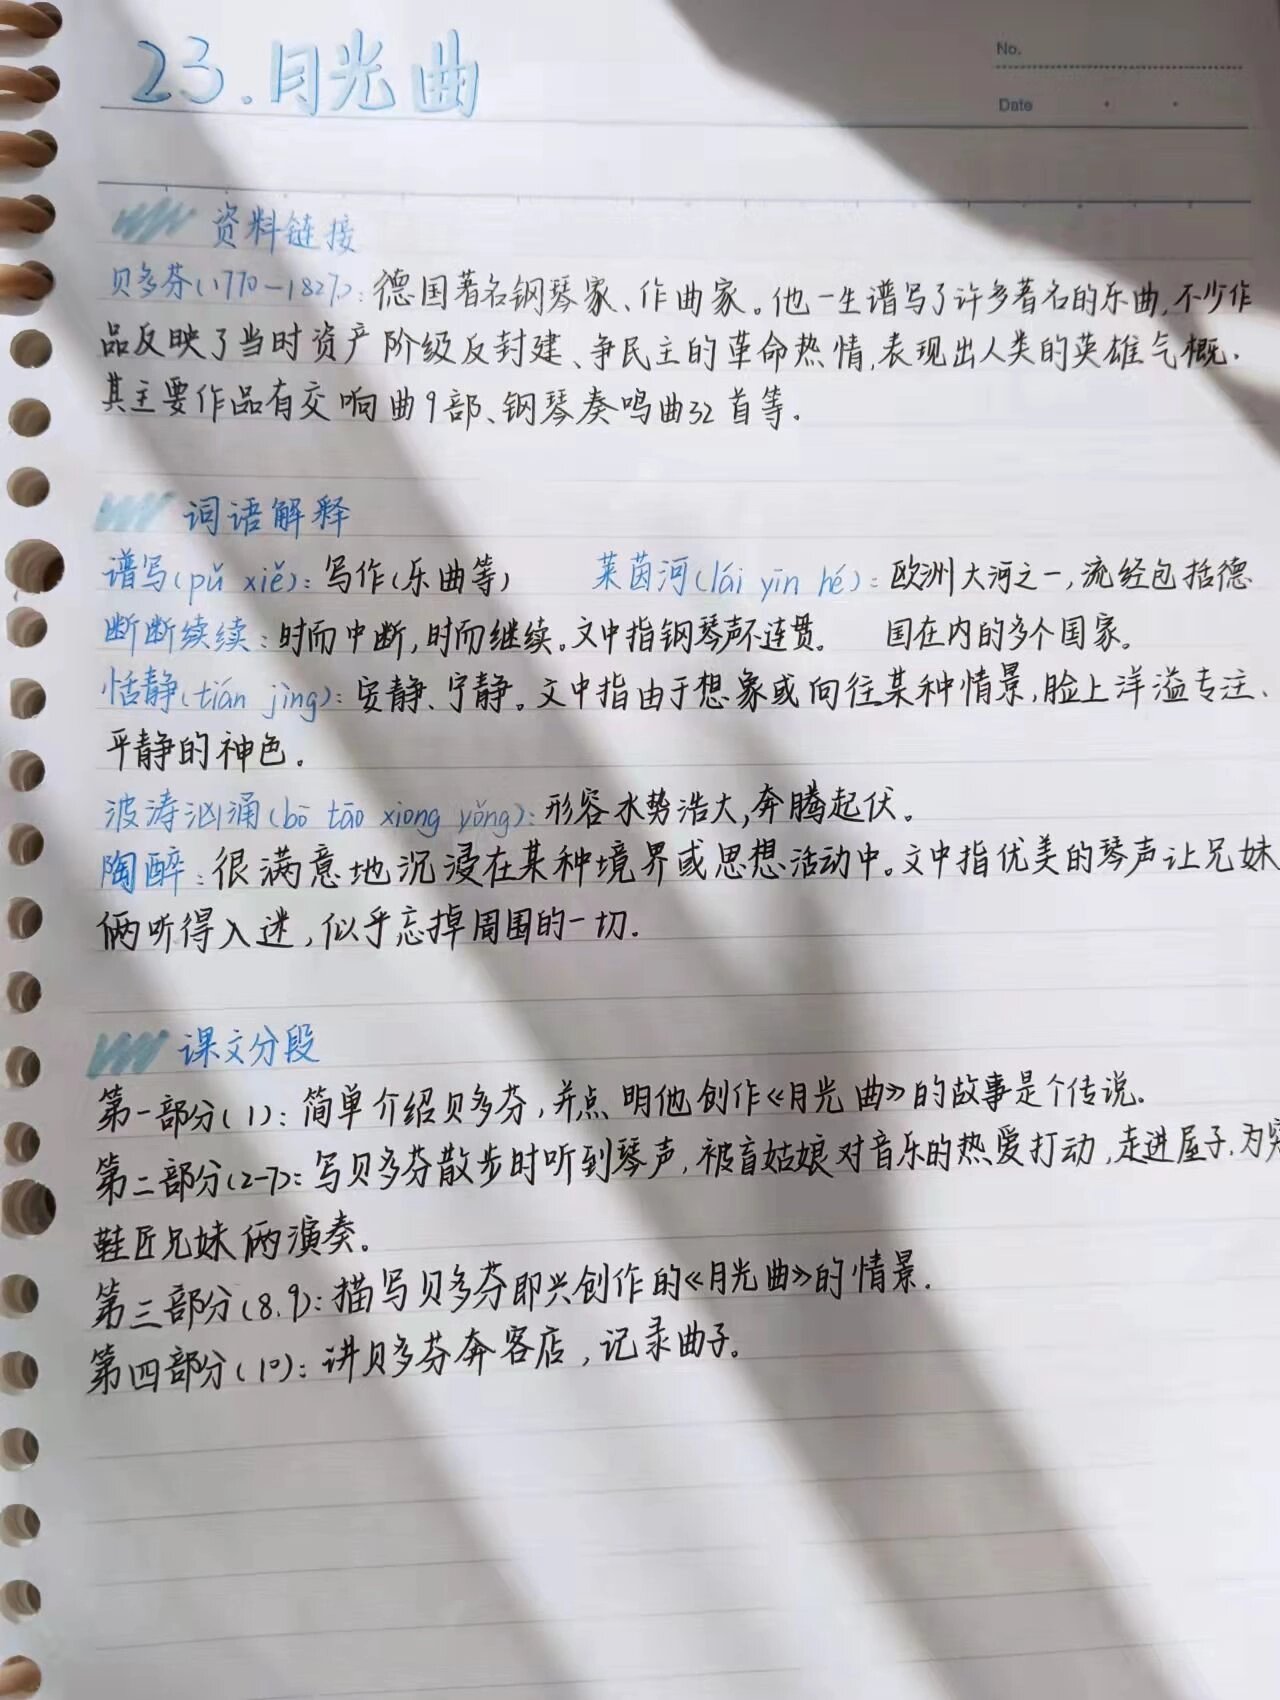 23.月光曲
No.
Date
资料链接
贝多芬(1770—1827):德国著名钢琴家、作曲家。他一生谱写了许多著名的乐曲,不少作
品反映了当时资产阶级反封建、争民主的革命热情,表现出人类的英雄气概.
其主要作品有交响曲9部、钢琴奏鸣曲32首等.
词语解释
谱写(pǔ xiě):写作(乐曲等) 莱茵河(lái yīn hé):欧洲大河之一,流经包括德
断断续续:时而中断,时而继续。文中指钢琴声不连贯。 国在内的多个国家。
恬静(tián jìng):安静、宁静。文中指由于想象或向往某种情景,脸上洋溢专注、
平静的神色.
波涛汹涌(bō tāo xiong yǒng):形容水势浩大,奔腾起伏。
陶醉:很满意地沉浸在某种境界或思想活动中。文中指优美的琴声让兄妹
俩听得入迷,似乎忘掉周围的一切.
课文分段
第一部分(1):简单介绍贝多芬,并点明他创作《月光曲》的故事是个传说.
第二部分(2-7):写贝多芬散步时听到琴声,被盲姑娘对音乐的热爱打动,走进屋子,为
鞋匠兄妹俩演奏。
第三部分(8.9):描写贝多芬即兴创作的《月光曲》的情景.
第四部分(10):讲贝多芬奔客店,记录曲子。